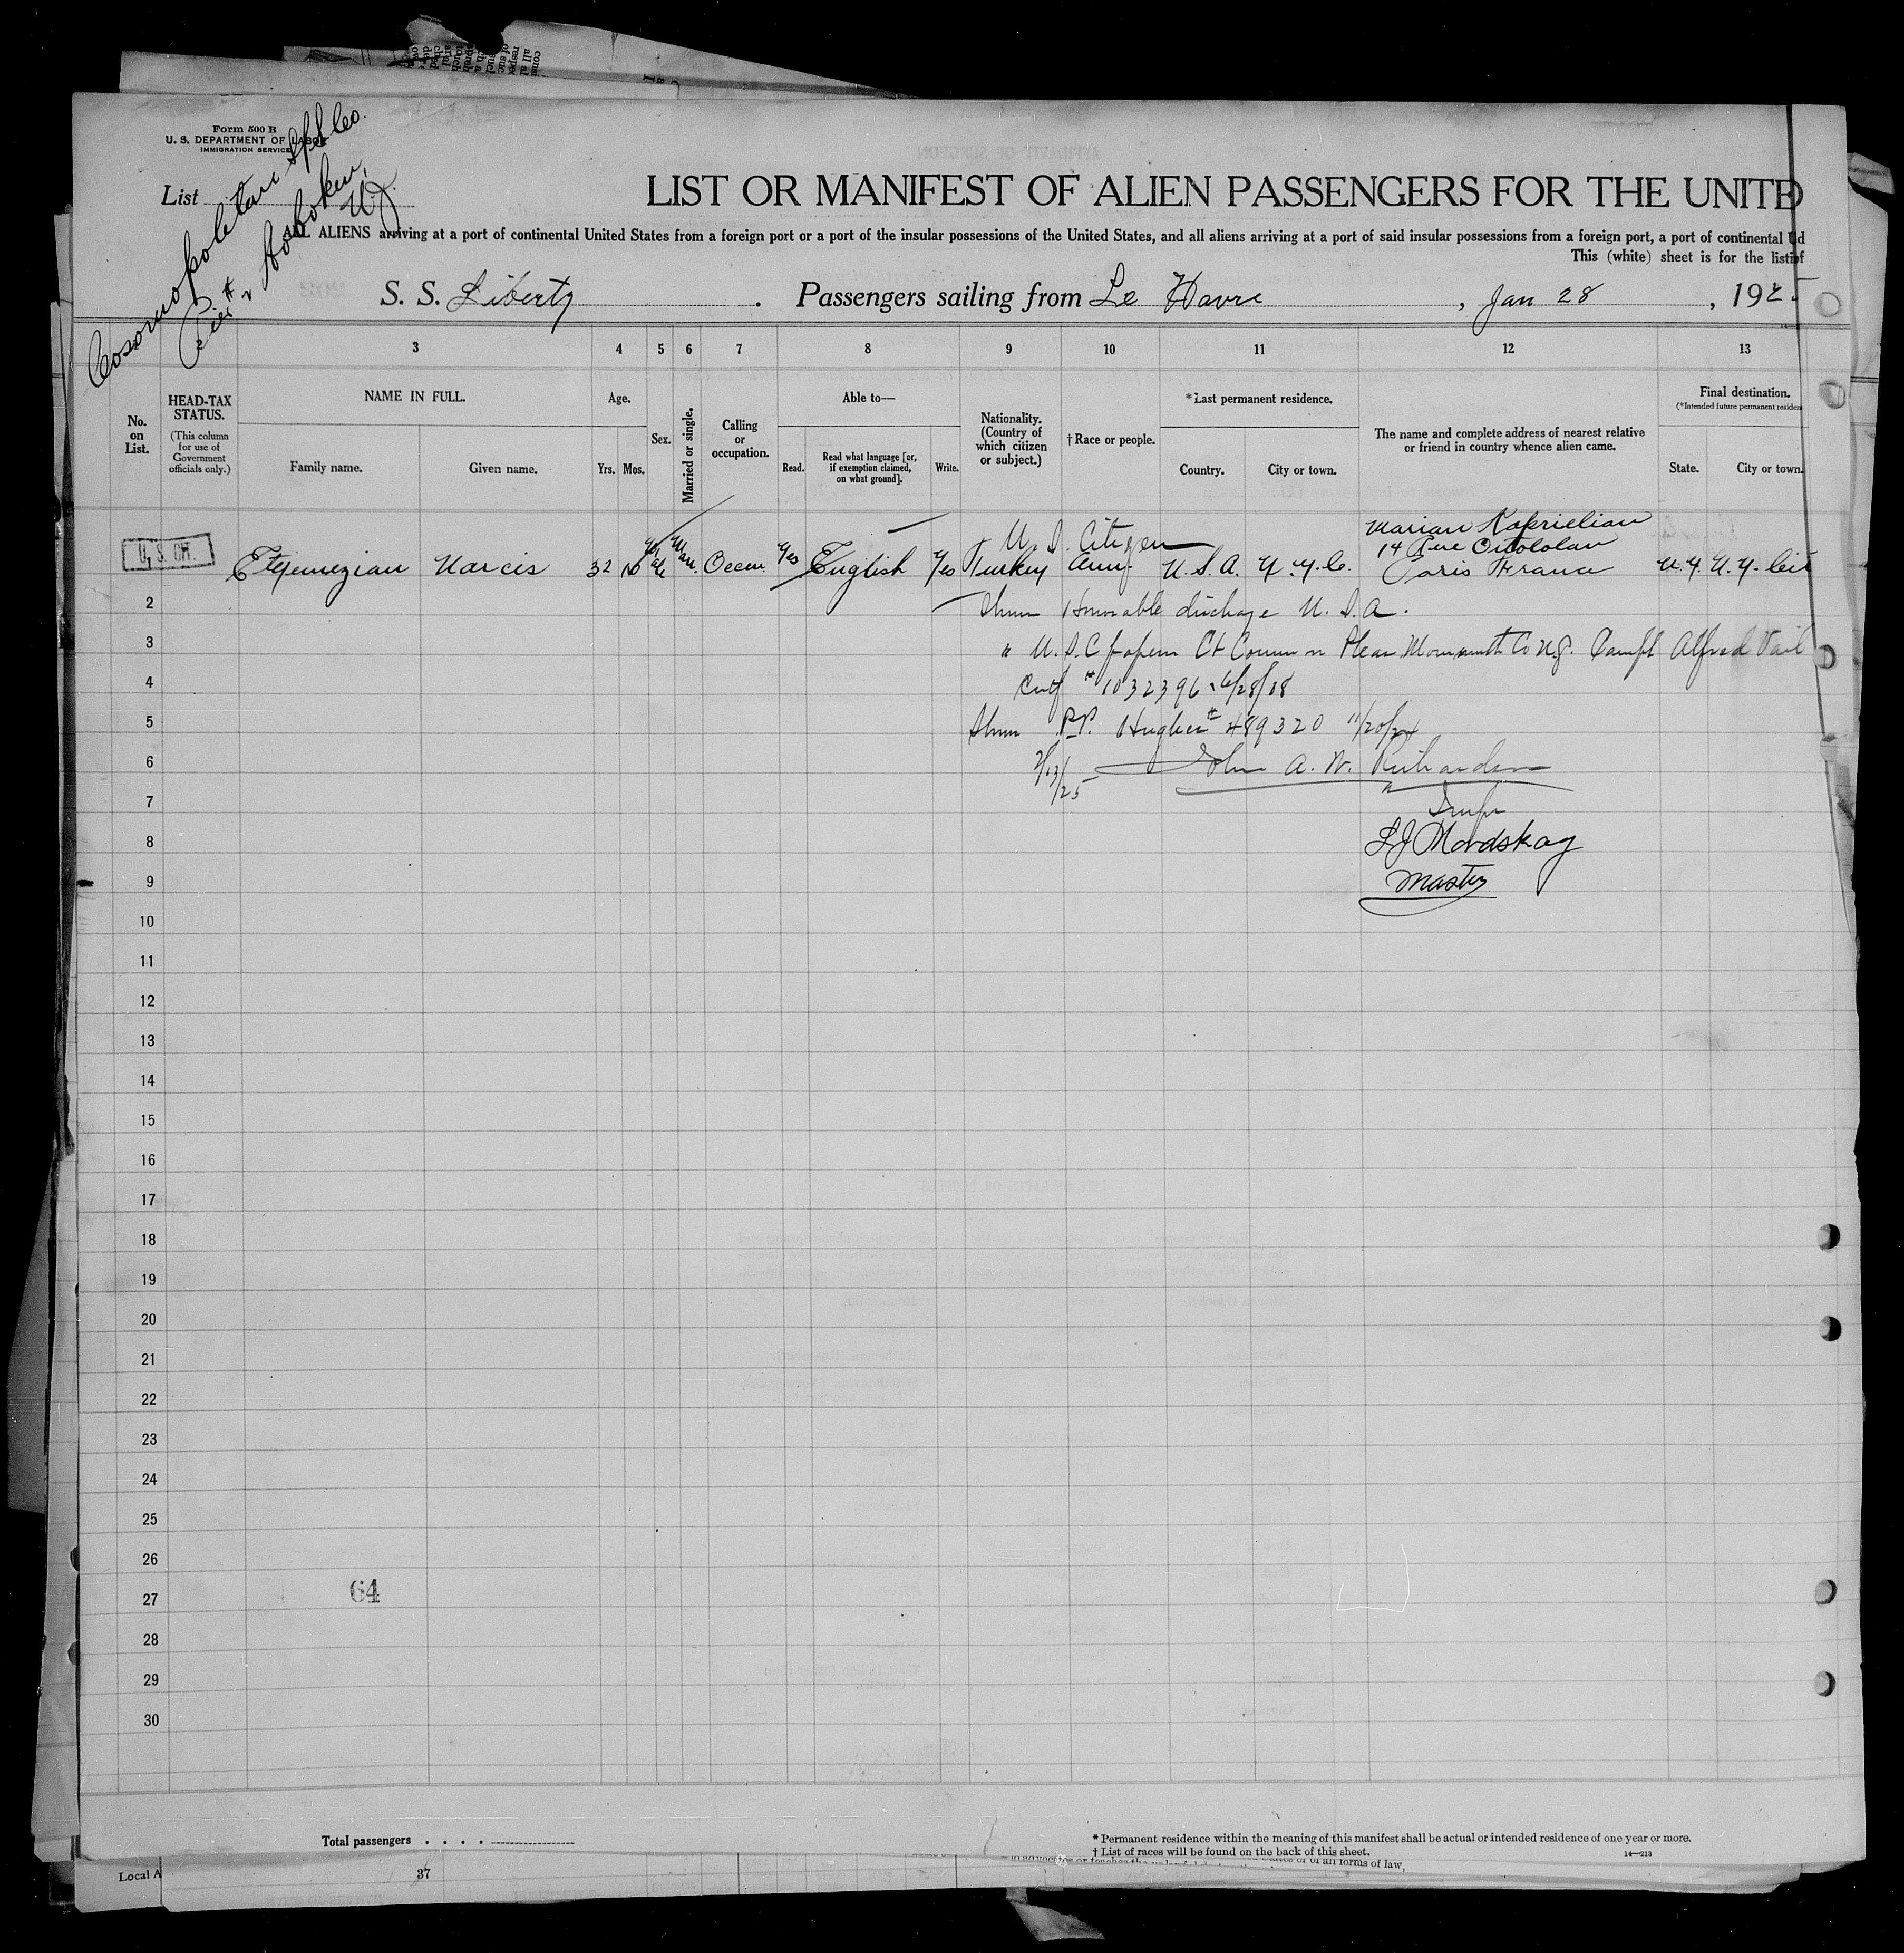 Form 500 B
U. S. DEPARTMENT OF LABOR
IMMIGRATION SERVICE
Pier # 2 Hoboken N.J.
List
LIST OR MANIFEST OF ALIEN PASSENGERS FOR THE UNITED
ALL ALIENS arriving at a port of continental United States from a foreign port or a port of the insular possessions of the United States, and all aliens arriving at a port of said insular possessions from a foreign port, a port of continental
This (white) sheet is for the
S. S. Liberty . Passengers sailing from Le Havre , Jan 28 , 1925
3 4 5 6 7 8 9 10 11 12 13
No. on List.
HEAD-TAX STATUS.
(This column for use of Government officials only.)
NAME IN FULL.
Family name. Given name.
Age.
Yrs. Mos.
Sex.
Married or single.
Calling or occupation.
Able to—
Read. Read what language [or, if exemption claimed, on what ground]. Write.
Nationality. (Country of which citizen or subject.)
† Race or people.
*Last permanent residence.
Country. City or town.
The name and complete address of nearest relative or friend in country whence alien came.
Final destination.
(*Intended future permanent
State. City or town.
U. S. Citizen
Marian Kaprielian
14 Rue
Paris France
Narcis 32 Yes English Yes Turkey U.S.A. N.Y.C. N.Y. N.Y. Cit
2 Shown Honorable discharge U.S.A.
3 " U.S.C. papers Ct Common Pleas Monmouth Co N.J. Camp Alfred Vail
4 Cert # 1032396
5 Shown P.P. Hughes # 489320 11/20/24
6 2/13/25 John A. W. Richardson
7 Inspr
8
9 Master
10
11
12
13
14
15
16
17
18
19
20
21
22
23
24
25
26
27
64
28
29
30
Total passengers . . . .
* Permanent residence within the meaning of this manifest shall be actual or intended residence of one year or more.
† List of races will be found on the back of this sheet.
14—213
Local A
37